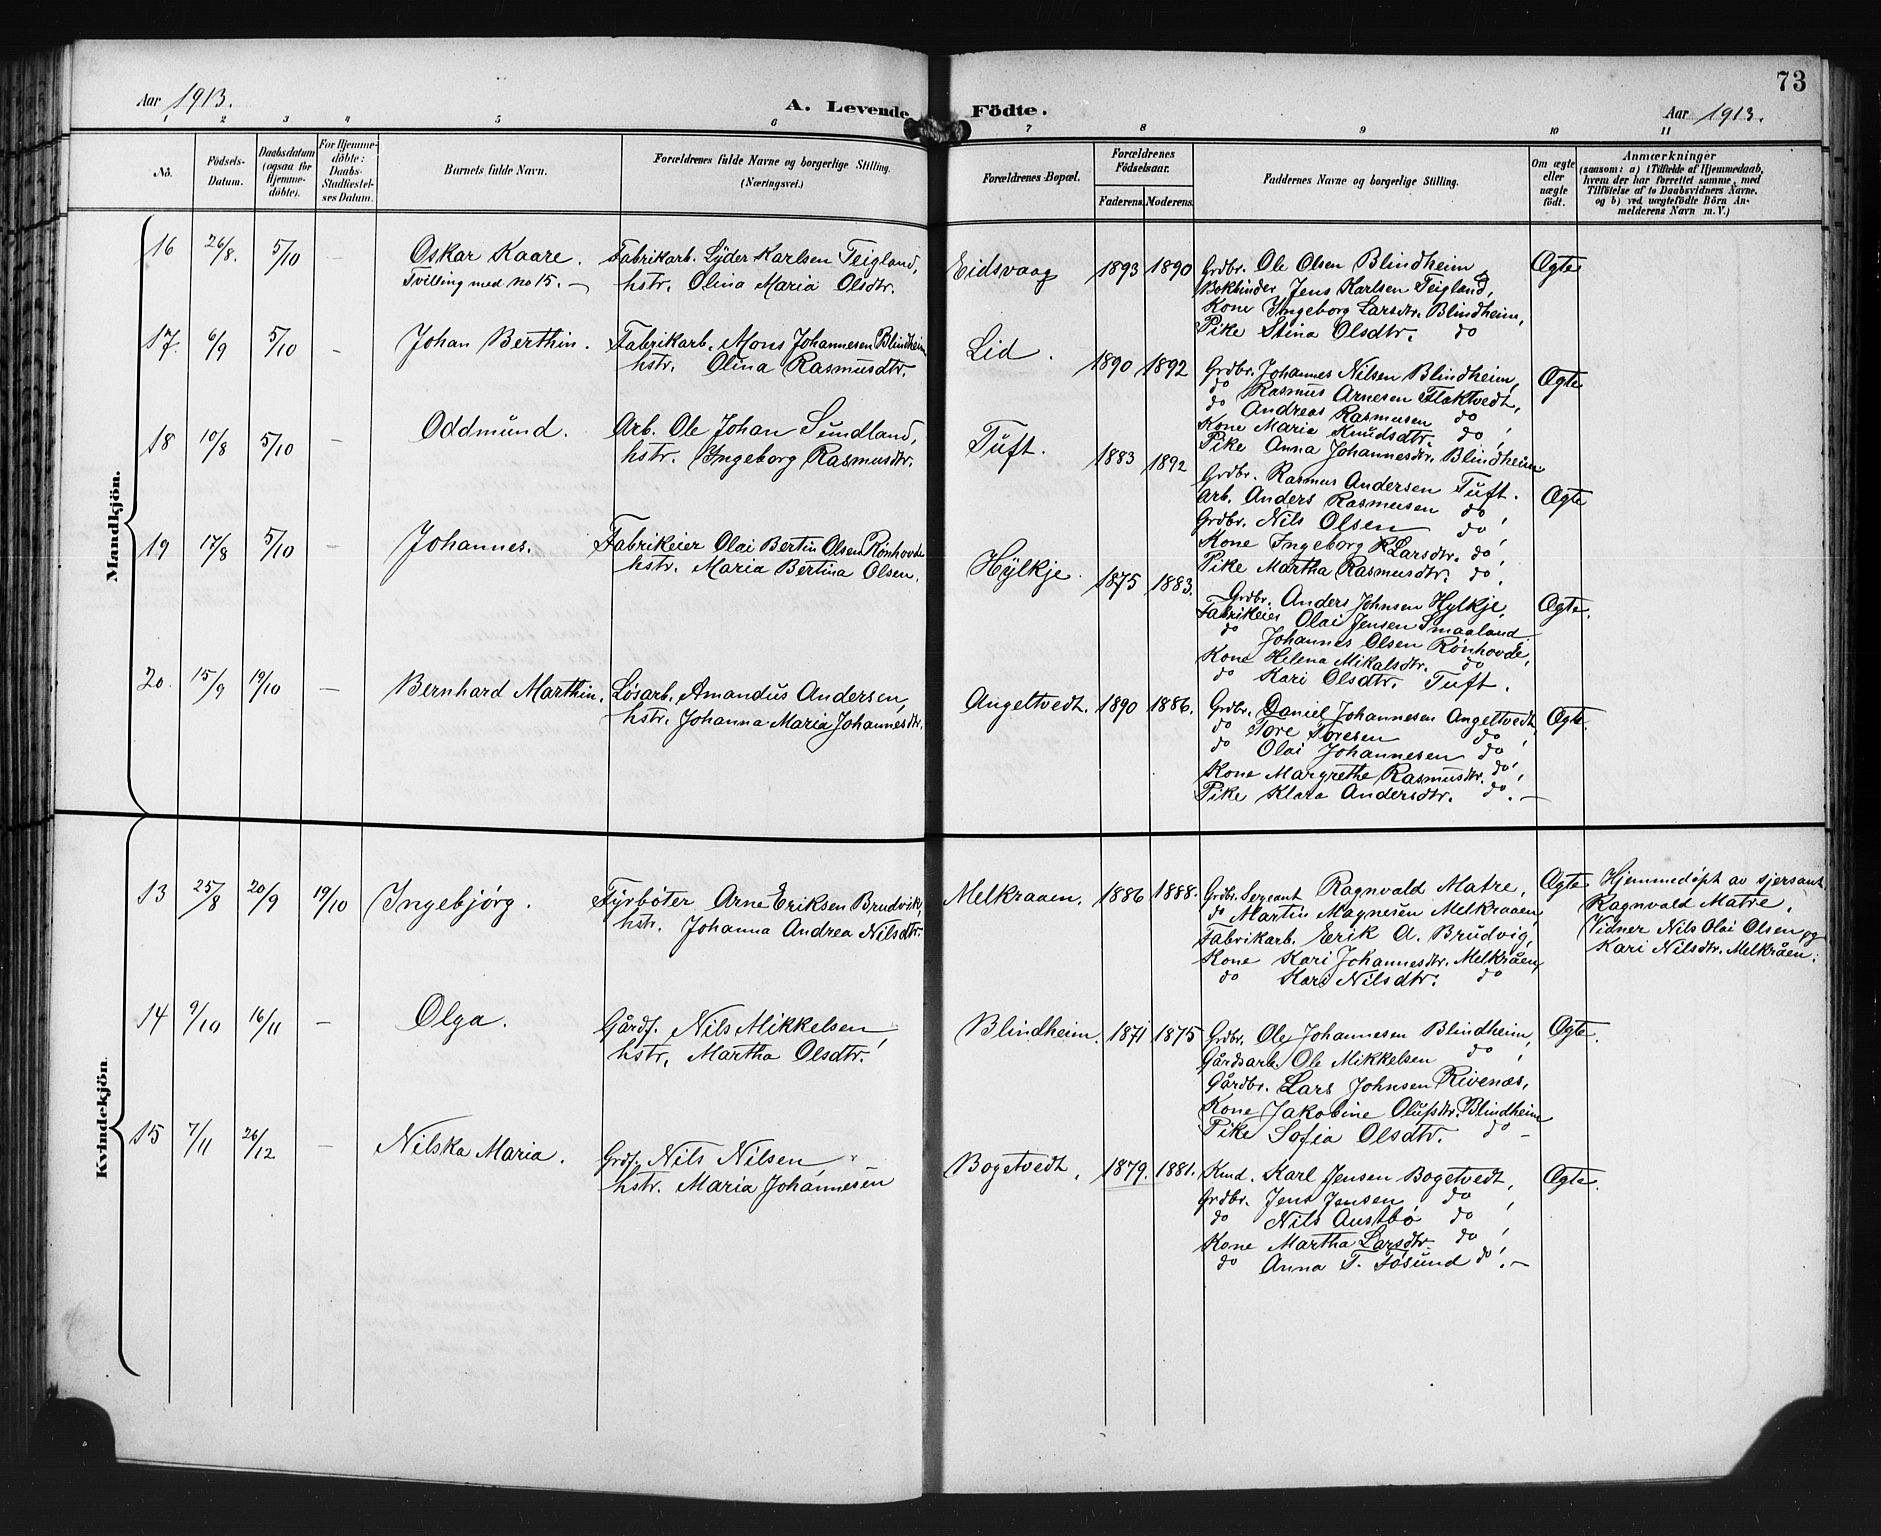 73
Aar 1913.
A. Levende Födte.
Aar 1913.
1 2 3 4 5 6 7 8 9 10 11
No.
Födsels-Datum.
Daabsdatum (ogsaa for Hjemmedöbte).
For Hjemmedöbte: Daabs-Stadfæstelses Datum.
Barnets fulde Navn.
Forældrenes fulde Navne og borgerlige Stilling.
(Næringsvei.)
Forældrenes Bopæl.
Forældrenes Födselsaar.
Faderens. Moderens.
Faddernes Navne og borgerlige Stilling.
Om ægte eller uægte födt.
Anmærkninger
(saasom: a) i Tilfælde af Hjemmedaab, hvem der har forrettet samme, med Tilföielse af to Daabsvidners Navne, og b) ved uægtefödte Börn Anmelderens Navn m. V.)
Mandkjön.
16 26/8. 5/10 – Oskar Kaare. Fabrikarb. Lyder Karlsen Teigland, Eidsvaag 1893 1890 Grdbr. Ole Olsen Blindheim, Ægte
Tvilling med no 15. – hstr. Olina Maria Olsdtr. Bokbinder Jens Karlsen Teigland,
Kone Ingeborg Larsdtr. Blindheim,
Pike Stina Olsdtr. do
17. 6/9 5/10 – Johan Berthin. Fabrikarb. Mons Johannesen Blindheim Lid. 1890 1892 Grdbr. Johannes Nilsen Blindheim, Ægte
hstr. Olina Rasmusdtr. do Rasmus Arnesen Flaktvedt,
do Andreas Rasmusen do,
Kone Maria Knudsdtr. do,
Pike Anna Johannesdtr. Blindheim
18 10/8 5/10 – Oddmund. Arb. Ole Johan Sundland, Tuft. 1883 1892 Grdbr. Rasmus Andersen Tuft. Ægte
hstr. Ingeborg Rasmusdtr. Arb. Anders Rasmusen do,
Grdbr. Nils Olsen do,
Kone Ingeborg Larsdtr. do,
Pike Martha Rasmusdtr. do.
19 17/8 5/10 – Johannes. Fabrikeier Olai Bertin Olsen Rønhovde Hylkje. 1875 1883. Grdbr. Anders Johnsen Hylkje, Ægte.
hstr. Maria Bertina Olsen. Fabrikeier Olai Jensen Smaaland
do Johannes Olsen Rønhovde,
Kone Helena Mikalsdtr. do
do Kari Olsdtr. Tuft.
20. 15/9 19/10 – Bernhard Marthin. Løsarb. Amandus Andersen, Angeltvedt. 1890 1886. Grdbr. Daniel Johannesen Angeltvedt, Ægte.
hstr. Johanna Maria Johannesdtr. do Tore Toresen do,
do Olai Johannesen do,
Kone Margrethe Rasmusdtr. do,
Pike Klara Andersdtr. do. –
Kvindekjön
13 25/8 20/9 19/10 Ingebjørg. Fyrbøter Arne Eriksen Brudvik, Melkraaen. 1886 1888. Grdbr. Sergeant Ragnvald Matre, Ægte Hjemmedøpt av sjersant
hstr. Johanna Andrea Nilsdtr. do Martin Magnesen Melkraaen, Ragnvald Matre,
Fabrikarb. Erik A. Brudvig, Vidner Nils Olai Olsen og
Kone Kari Johannesdtr. Melkråen, Kari Nilsdtr. Melkråen.
do Kari Nilsdtr. do
14 9/10 16/11 – Olga. Gårdf. Nils Mikkelsen, Blindheim. 1871 1875 Grdbr. Ole Johannesen Blindheim, Ægte.
hstr. Martha Olsdtr. Gårdsarb. Ole Mikkelsen do,
Gårdbr. Lars Johnsen Rivenæs,
Kone Jakobine Olufsdtr. Blindheim
Pike Sofia Olsdtr. do –
15 7/11 26/12 – Nilska Maria. Grdf. Nils Nilsen, Bogetvedt. 1879. 1881. Knud. Karl Jensen Bogetvedt, Ægte.
hstr. Maria Johannesen Grdbr. Jens Jensen do,
do Nils Austbø do,
Kone Martha Larsdtr. do,
do Anna T. Tøsund do. –